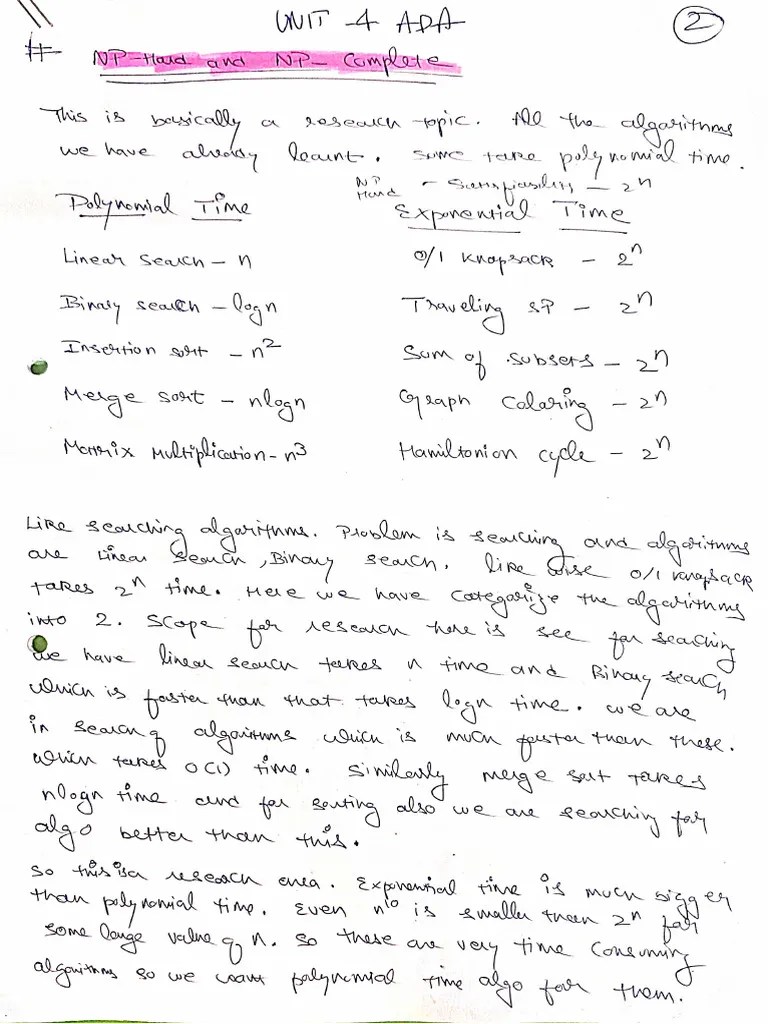 UNIT - 4 ADA
2
# NP-Hard and NP-Complete
This is basically a research topic. All the algorithms
we have already learnt. Some take polynomial time.
NP Hard - Satisfiability - 2^n
Polynomial Time
Exponential Time
Linear search - n
0/1 Knapsack - 2^n
Binary search - logn
Traveling SP - 2^n
Insertion sort - n^2
Sum of subsets - 2^n
Merge sort - nlogn
Graph Colaring - 2^n
Matrix Multiplication - n^3
Hamiltonion cycle - 2^n
Like searching algorithms. Problem is searching and algorithms
are Linear Search, Binary search. like wise 0/1 Knapsack
takes 2^n time. Here we have Categorize the algorithms
into 2. Scope for research here is see for seaching
we have linear search takes n time and Binary search
which is faster than that takes logn time. we are
in search of algorithms which is much faster than these.
which takes O(1) time. Similarly merge sort takes
nlogn time and for sorting also we are searching for
algo better than this.
So this is a research area. Exponential time is much bigger
than polynomial time. Even n^10 is smaller than 2^n for
some large value of n. So these are very time Consuming
algorithms so we want polynomial time algo for them.